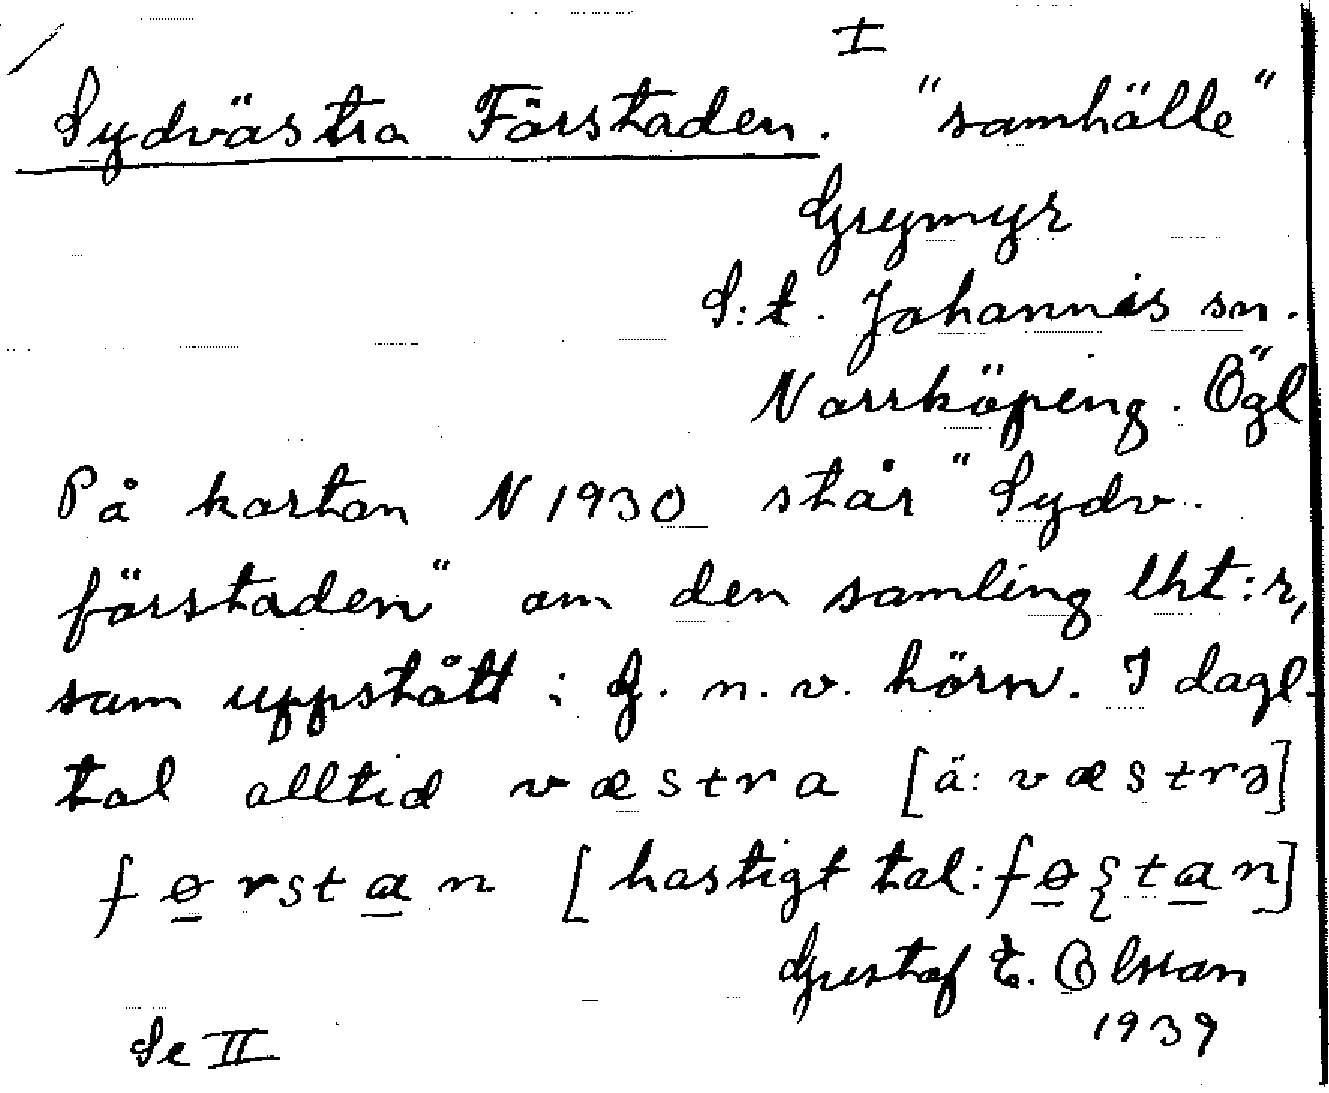 I
Sydvästra Förstaden. "samhälle"
Grymyr
S:t. Johannis sn.
Norrköping. Ögl
På kartan N 1930 står "Sydv.
förstaden" om den samling lht:r,
som uppstått i G. n.v. hörn. I dagl.
tal alltid væstra [ä: væstrɜ]
fɵrstan [hastigt tal: fɵʂtan]
Gustaf E. Olsson
1939
Se II